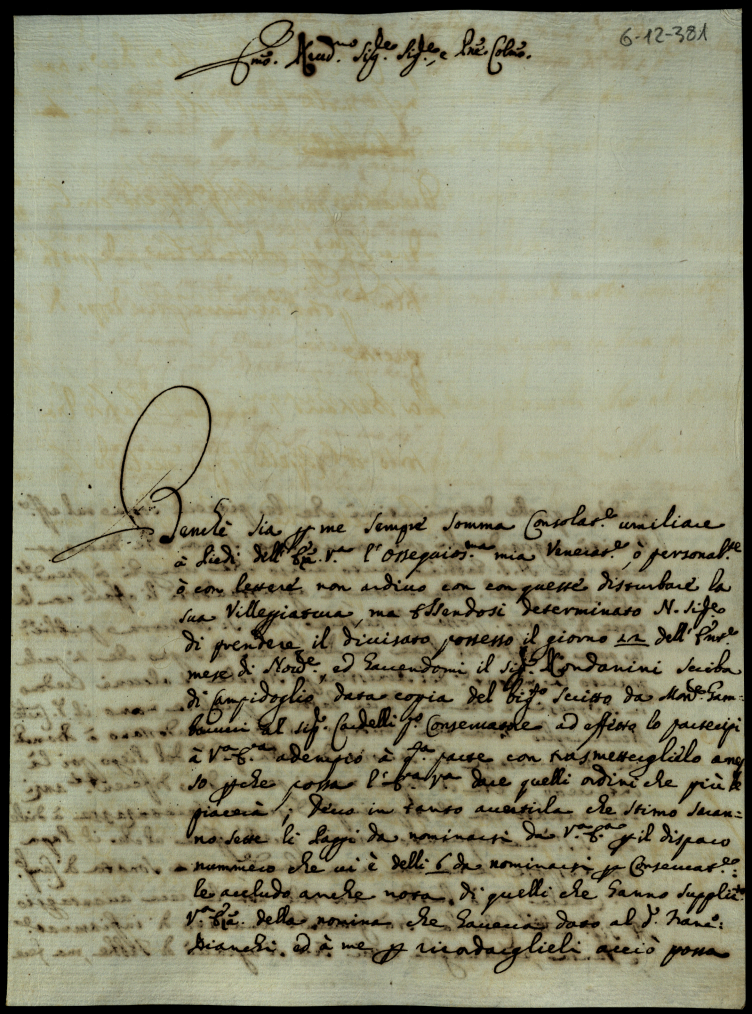 6-12-381
Emo. Revd.mo Sig.re Sig.re, e Pne. Colmo.
Benché sia p me sempre somma Consolat.e umiliare
à Piedi dell' Em.a V.a l'ossequios.ma mia Venerat.e, ò personal.te
ò con lettere non ardivo con queste disturbare la
sua Villeggiatura, ma essendosi determinato N. Sig.re
di prendere il divisato possesso il giorno dell' 
mese di Nov.e, ed havendomi il Sig. Rondanini scriba
di Campidoglio data copia del big.to scritto da Mons.
al Sig. Cardelli p.o Conservatore ad effetto lo partecipi
à V.a Em.a adempio à q.ta parte con trasmetterglielo an
so pche possa l' Em.a V.a dare quelli ordini che più le
piacerà; devo in tanto avertirla che stimo saran=
no sette li Paggi da nominarsi da V.a Em.a p il disparo
numero che vi è delli 6 da nominarsi p Conservat.e:
le accludo anche nota di quelli che hanno supplic.to
V.a Em.a della nomina che haveva dato al Franc.:
Bianchi ed à me p ricordarglieli acciò possa